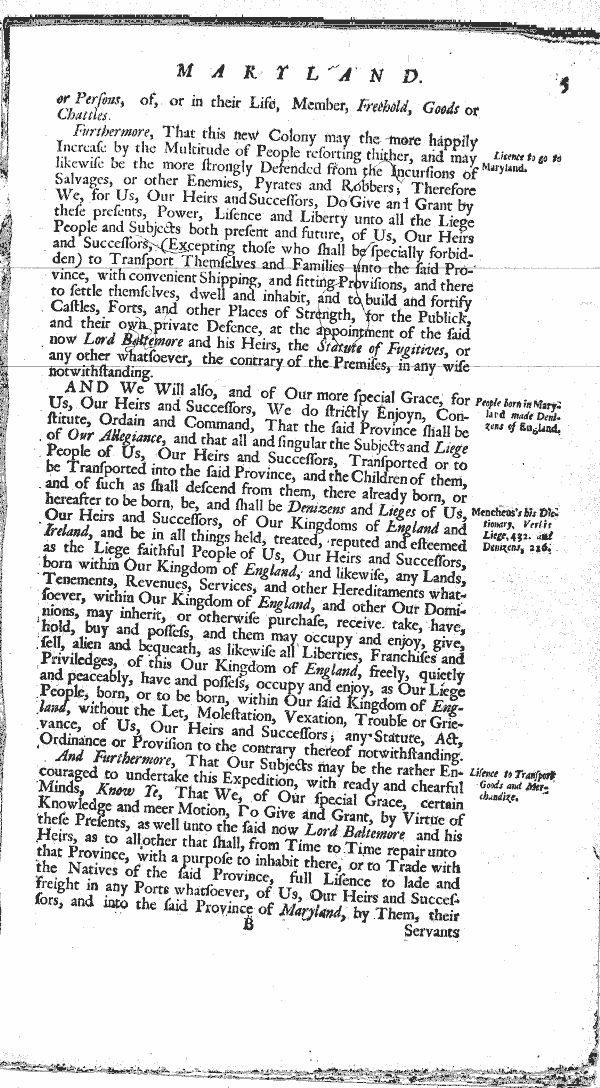 M A R Y L A N D.
5
or Perſons, of, or in their Life, Member, Freehold, Goods or
Chattles.
Furthermore, That this new Colony may the more happily
Increaſe by the Multitude of People reſorting thither, and may
likewiſe be the more ſtrongly Defended from the Incurſions of
Salvages, or other Enemies, Pyrates and Robbers; Therefore
We, for Us, Our Heirs and Succeſſors, Do Give and Grant by
theſe preſents, Power, Liſence and Liberty unto all the Liege
People and Subjects both preſent and future, of Us, Our Heirs
and Succeſſors, (Excepting thoſe who ſhall be ſpecially forbid-
den) to Tranſport Themſelves and Families unto the ſaid Pro-
vince, with convenient Shipping, and fitting Proviſions, and there
to ſettle themſelves, dwell and inhabit, and to build and fortify
Caſtles, Forts, and other Places of Strength, for the Publick,
and their own private Defence, at the appointment of the ſaid
now Lord Baltemore and his Heirs, the Statute of Fugitives, or
any other whatſoever, the contrary of the Premiſes, in any wiſe
notwithſtanding.
Licence to go to
Maryland.
AND We Will alſo, and of Our more ſpecial Grace, for
Us, Our Heirs and Succeſſors, We do ſtrictly Enjoyn, Con-
ſtitute, Ordain and Command, That the ſaid Province ſhall be
of Our Allegiance, and that all and ſingular the Subjects and Liege
People of Us, Our Heirs and Succeſſors, Tranſported or to
be Tranſported into the ſaid Province, and the Children of them,
and of ſuch as ſhall deſcend from them, there already born, or
hereafter to be born, be, and ſhall be Denizens and Lieges of Us,
Our Heirs and Succeſſors, of Our Kingdoms of England and
Ireland, and be in all things held, treated, reputed and eſteemed
as the Liege faithful People of Us, Our Heirs and Succeſſors,
born within Our Kingdom of England, and likewiſe, any Lands,
Tenements, Revenues, Services, and other Hereditaments what-
ſoever, within Our Kingdom of England, and other Our Domi-
nions, may inherit, or otherwiſe purchaſe, receive take, have,
hold, buy and poſſeſs, and them may occupy and enjoy, give,
ſell, alien and bequeath, as likewiſe all Liberties, Franchiſes and
Priviledges, of this Our Kingdom of England, freely, quietly
and peaceably, have and poſſeſs, occupy and enjoy, as Our Liege
People, born, or to be born, within Our ſaid Kingdom of Eng-
land, without the Let, Moleſtation, Vexation, Trouble or Grie-
vance, of Us, Our Heirs and Succeſſors; any Statute, Act,
Ordinance or Proviſion to the contrary thereof notwithſtanding.
People born in Mary-
land made Deni-
zens of England.
Mencheus's his Dic-
tionary, Verſis
Liege, 432. and
Denizens, 226.
And Furthermore, That Our Subjects may be the rather En-
couraged to undertake this Expedition, with ready and chearful
Minds, Know Ye, That We, of Our ſpecial Grace, certain
Knowledge and meer Motion, Do Give and Grant, by Virtue of
theſe Preſents, as well unto the ſaid now Lord Baltemore and his
Heirs, as to all other that ſhall, from Time to Time repair unto
that Province, with a purpoſe to inhabit there, or to Trade with
the Natives of the ſaid Province, full Liſence to lade and
freight in any Ports whatſoever, of Us, Our Heirs and Succeſ-
ſors, and into the ſaid Province of Maryland, by Them, their
Liſence to Tranſport
Goods and Mer-
chandize.
B
Servants